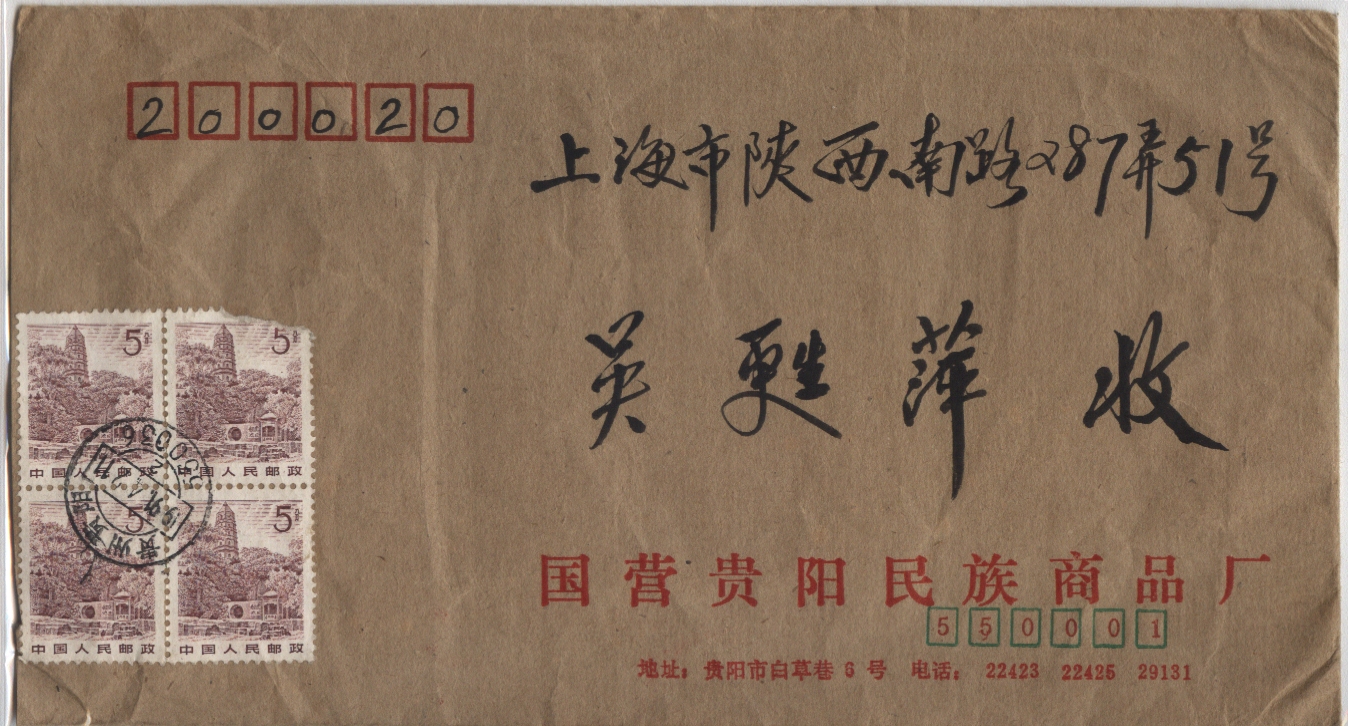 200020
上海市陝西南路287弄51号
吴甦萍 收
5分
5分
中国人民邮政
中国人民邮政
5
5分
中国人民邮政
中国人民邮政
550036
贵州贵阳
国营贵阳民族商品厂
550001
地址：贵阳市白草巷6号 电话：22423 22425 29131